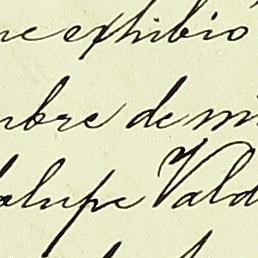 me exhibió
mbre de mi
alupe Vald